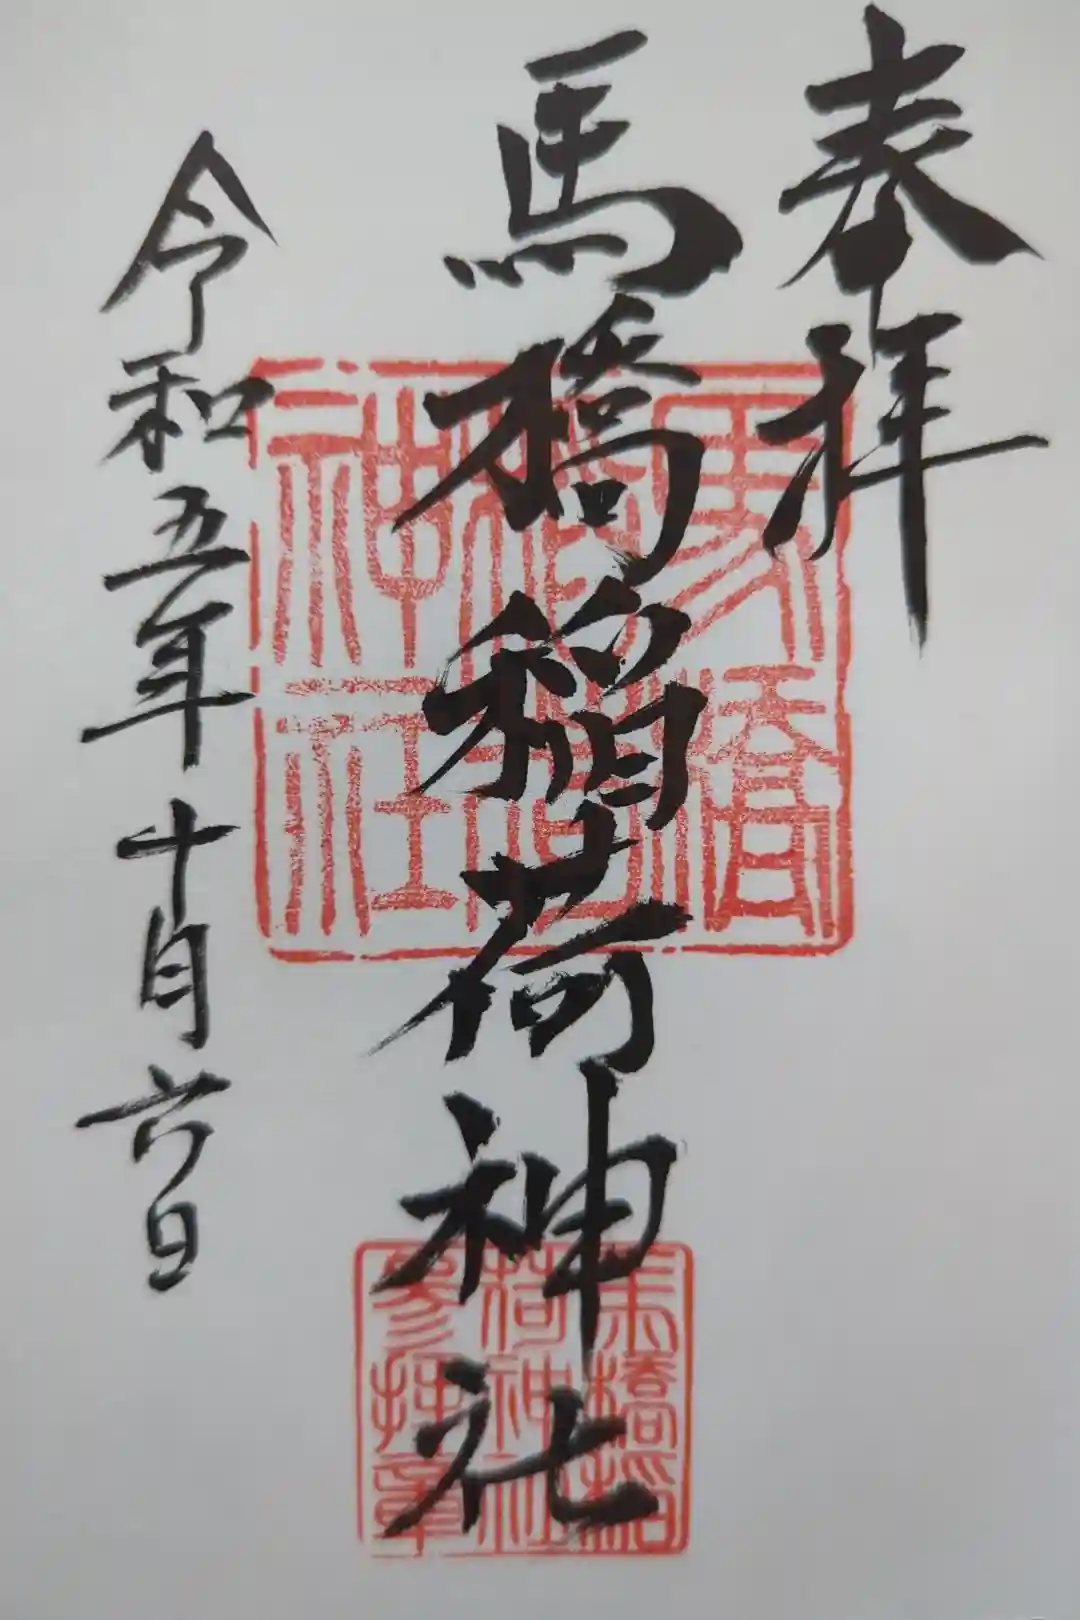 奉拝
馬橋稲荷神社
令和五年十月六日
馬橋
稲荷
神社
馬橋稲
荷神社
参拝章